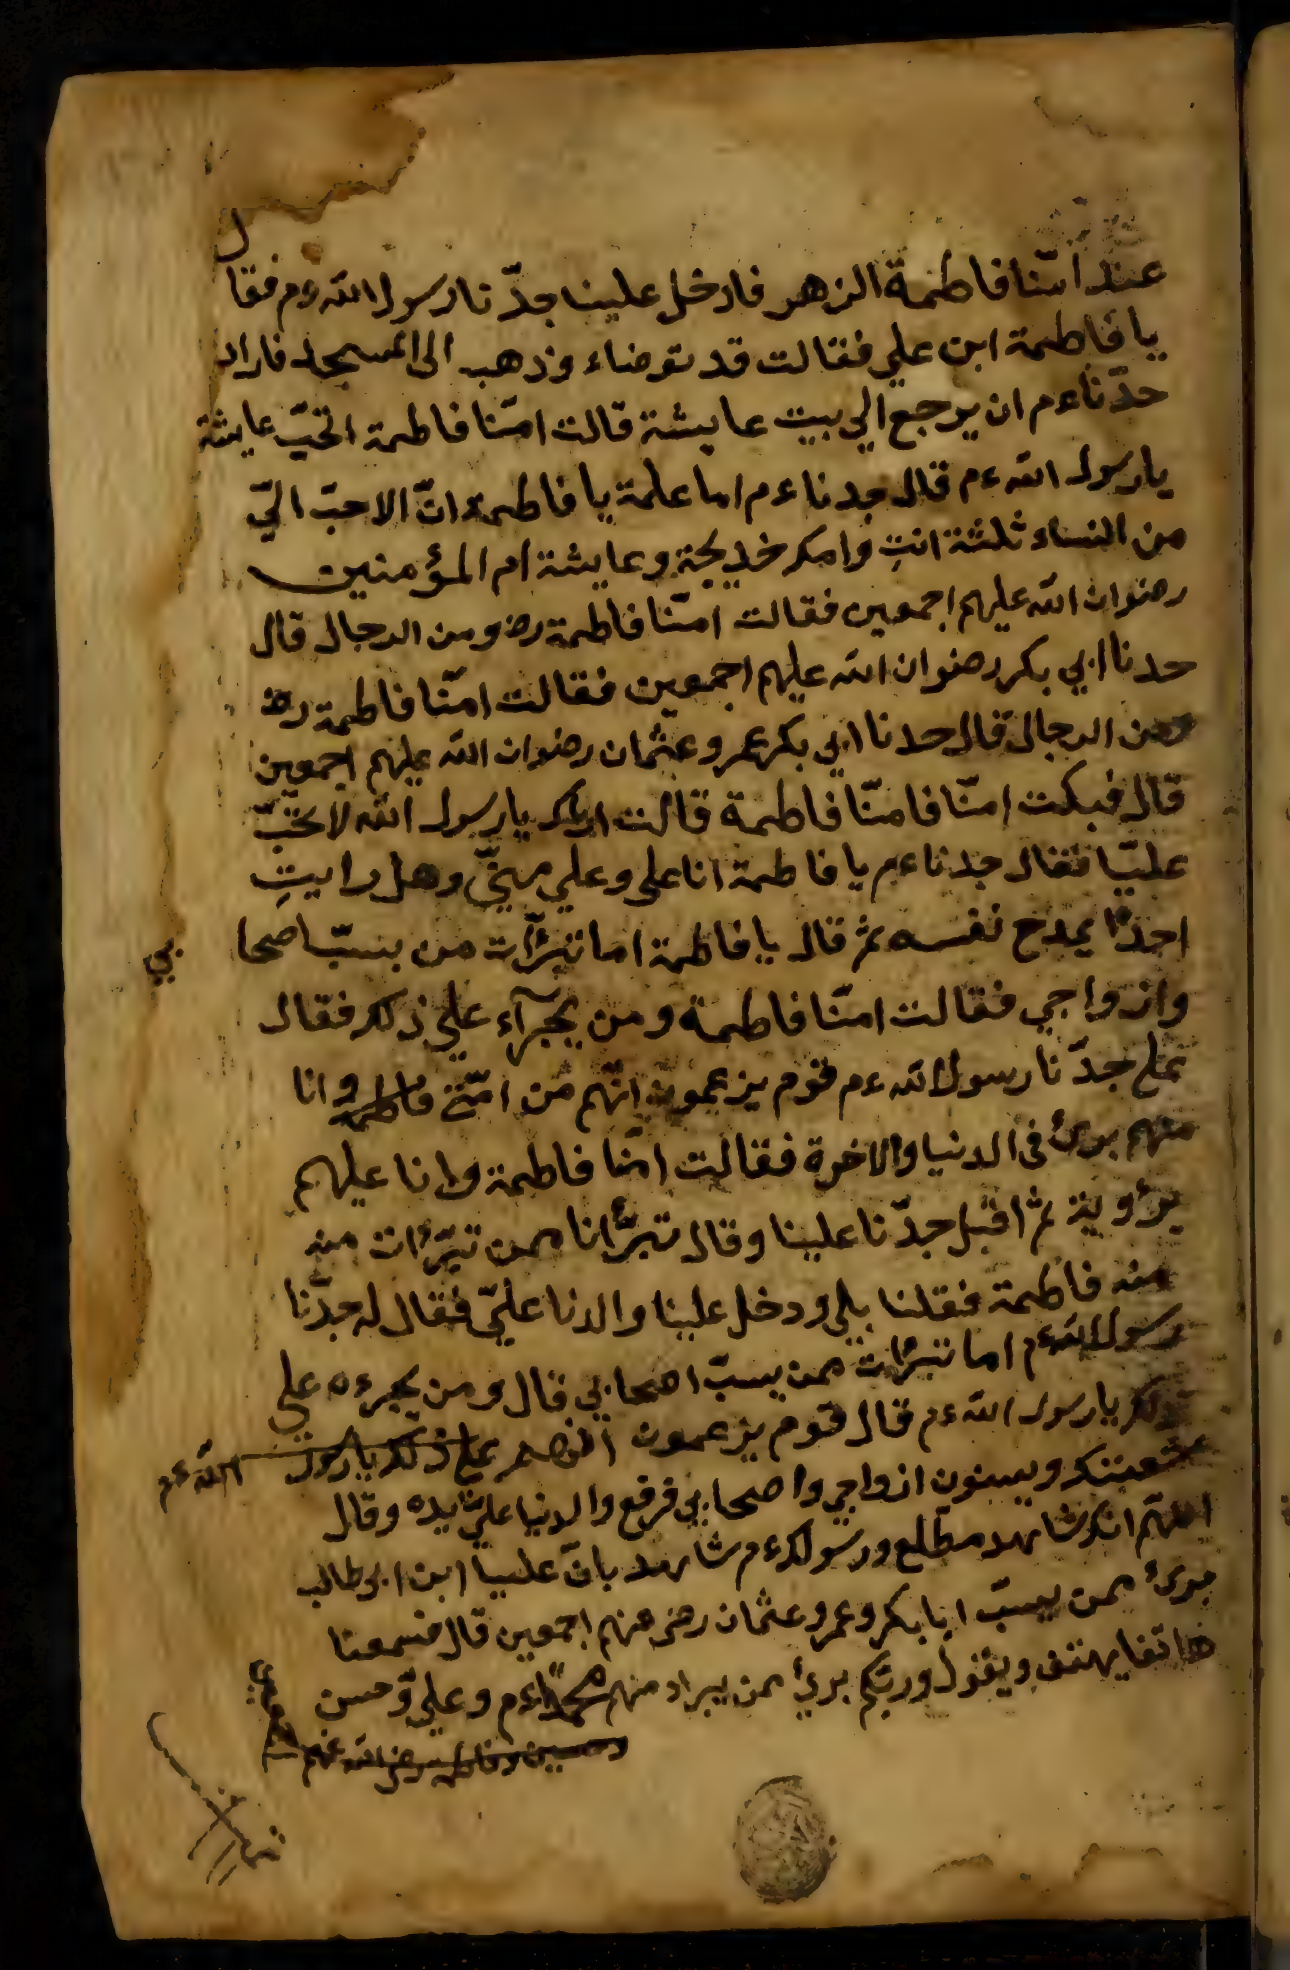 عند امّنا فاطمة الزهر فادخل علينا جدّنا رسول الله ءم فقال
يا فاطمة ابن علي فقالت قد توضاء وذهب الى المسجد فاراد
جدّنا ءم ان يرجع الي بيت عايشة قالت امّنا فاطمة اتحبّ عايشة
يا رسول الله ءم قال جدنا ءم اما علمة يا فاطمة انّ الاحبّ اليّ
من النساء ثلثة انتِ وامك خديجة وعايشة ام المؤمنين
رضوان الله عليهم اجمعين فقالت امّنا فاطمة رض ومن الرجال قال
جدنا ابي بكر رضوان الله عليهم اجمعين فقالت امّنا فاطمة رض
ومن الرجال قال جدنا ابي بكر عمر وعثمان رضوان الله عليهم اجمعين
قال فبكت امنّا فامنّا فاطمة قالت اراك يا رسول الله لا تحبّ
عليّا فقال جدنا ءم يا فاطمة انا علي وعلي منيّ وهل رايتِ
احدًا يمدح نفسه ثم قال يا فاطمة اما تبرّأت من بسبّ اصحابي
وازواجي فقالت امّنا فاطمة ومن يجرآء علي ذلك فقال
جدّنا رسول الله ءم قوم يزعمون انّهم من امّتي وانا
منهم برئ في الدنيا والاخرة فقالت امّنا فاطمة وانا عليهم
ثم اقبل جدّنا علينا وقال تبرّأنا ممن تبرّأت منه
منه فاطمة فقلنا بلي ودخل علينا والدنا عليّ فقال له جدّنا
رسول الله ءم اما تبرّأت ممن يسبّ اصحابي قال ومن يجرءه علي
ذلك يا رسول الله ءم قال قوم يزعمون انهم علي ذلك يا رسول الله ءم
ويسبون ازواجي واصحابي فرفع والدنا عليّ يده وقال
اللهمّ انك شاهد مطّلع ورسولك ءم شاهد بانّ عليا ابن ابي طالب
برئ ممن يسبّ ابا بكر وعمر وعثمان رض عنهم اجمعين قال فسمعنا
هاتفا يهتف ويقول وربّكم برئ ممن يبراد منهم محمدًا ءم وعلي وحسن
وحسين وفاطمه رض الله عنهم